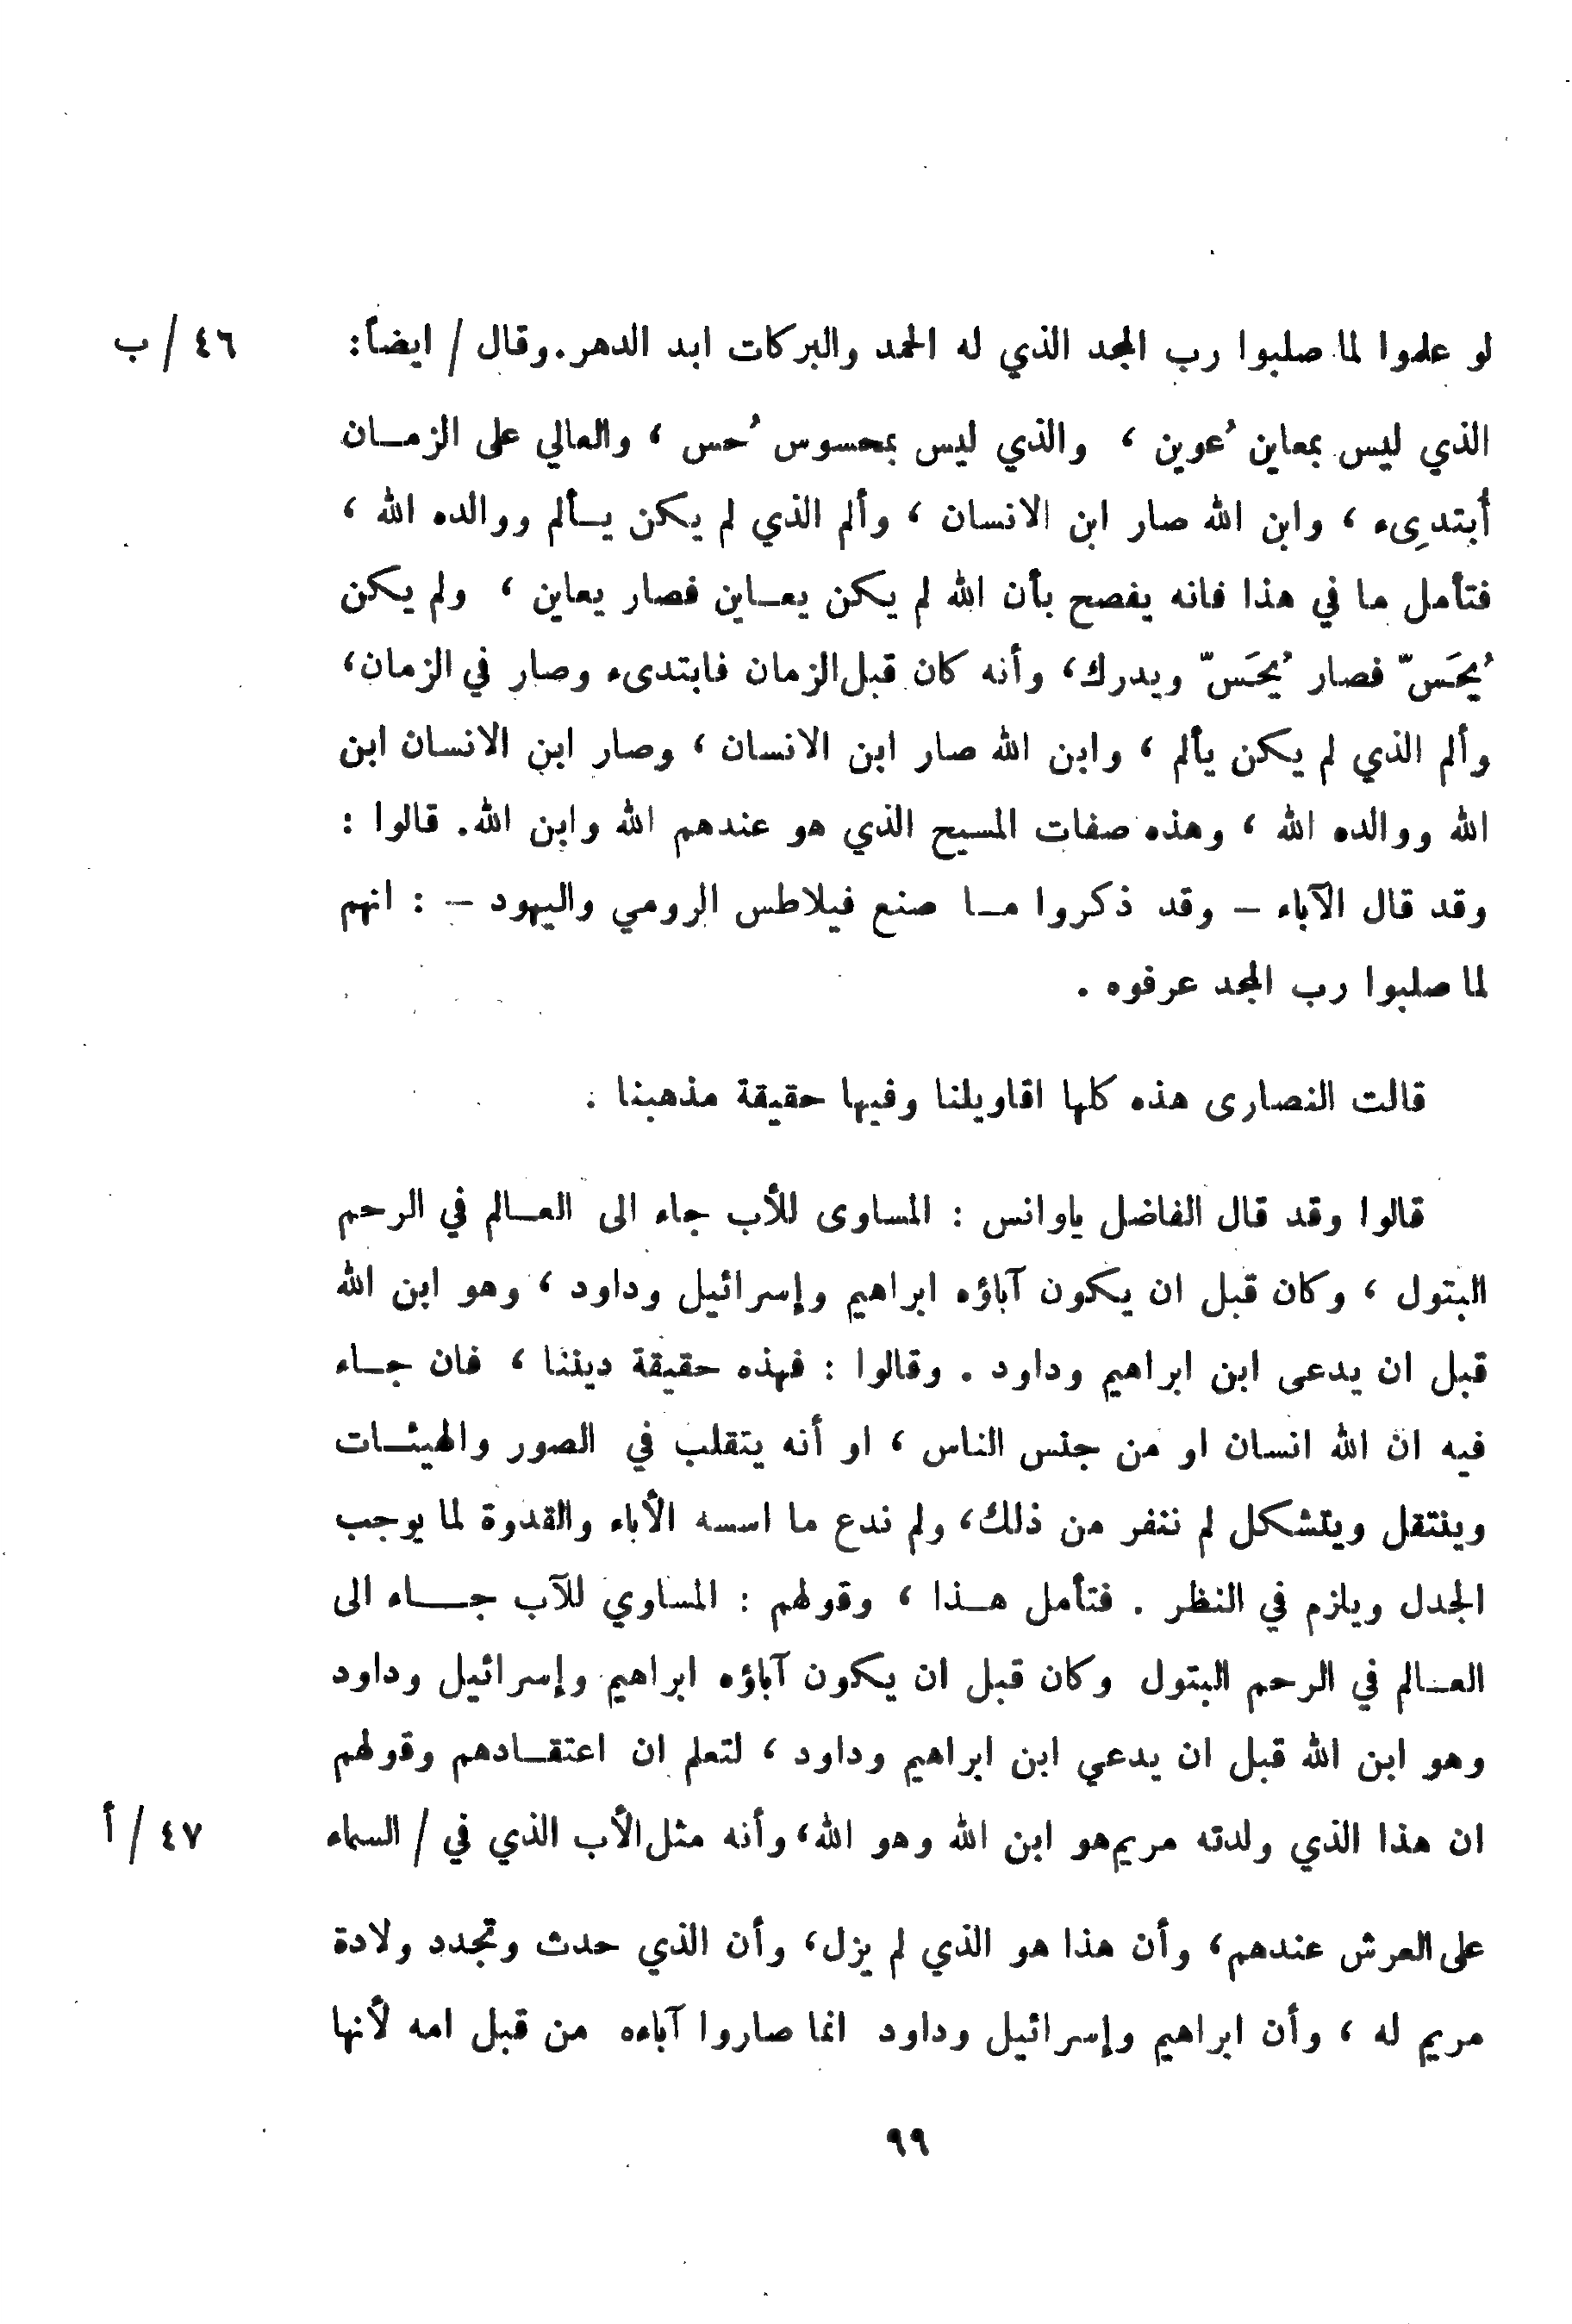 لو علموا لما صلبوا رب المجد الذي له الحمد والبركات ابد الدهر. وقال / ايضاً: ٤٦ / ب
الذي ليس بمعاين عُوين ، والذي ليس بمحسوس حُس ، والعالي على الزمـان
أبتدِىء ، وابن الله صار ابن الانسان ، وألم الذي لم يكن يـألم ووالده الله ،
فتأمل ما في هذا فانه يفصح بأن الله لم يكن يعـاين فصار يعاين ، ولم يكن
يُحَسّ فصار يُحَسّ ويدرك، وأنه كان قبل الزمان فابتدىء وصار في الزمان،
وألم الذي لم يكن يألم ، وابن الله صار ابن الانسان ، وصار ابن الانسان ابن
الله ووالده الله ، وهذه صفات المسيح الذي هو عندهم الله وابن الله. قالوا :
وقد قال الآباء – وقد ذكروا مـا صنع فيلاطس الرومي واليهود – : انهم
لما صلبوا رب المجد عرفوه .
قالت النصارى هذه كلها اقاويلنا وفيها حقيقة مذهبنا .
قالوا وقد قال الفاضل ياوانس : المساوى للأب جاء الى العـالم في الرحم
البتول ، وكان قبل ان يكون آباؤه ابراهيم وإسرائيل وداود ، وهو ابن الله
قبل ان يدعى ابن ابراهيم وداود . وقالوا : فهذه حقيقة ديننا ، فان جـاء
فيه ان الله انسان او من جنس الناس ، او أنه يتقلب في الصور والهيئـات
وينتقل ويتشكل لم ننفر من ذلك، ولم ندع ما اسسه الأباء والقدوة لما يوجب
الجدل ويلزم في النظر . فتأمل هـذا ، وقولهم : المساوي للآب جـاء الى
العـالم في الرحم البتول وكان قبل ان يكون آباؤه ابراهيم وإسرائيل وداود
وهو ابن الله قبل ان يدعي ابن ابراهيم وداود ، لتعلم ان اعتقـادهم وقولهم
ان هذا الذي ولدته مريم هو ابن الله وهو الله، وأنه مثل الأب الذي في / السماء ٤٧ / أ
على العرش عندهم، وأن هذا هو الذي لم يزل، وأن الذي حدث وتجدد ولادة
مريم له ، وأن ابراهيم وإسرائيل وداود انما صاروا آباءه من قبل امه لأنها
٩٩